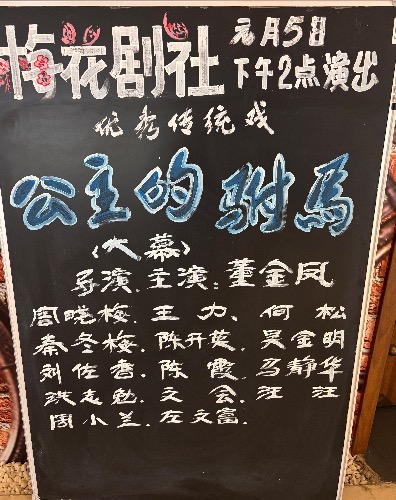 梅花剧社
元月5日
下午2点演出
优秀传统戏
公主的驸馬
《大幕》
导演.主演:董金凤
周晓梅.王力.何松
秦冬梅.陈开英.吴金明
刘佐香.陈霞.马静华
洪志勉.文会.汪汪
周小兰.左文富.